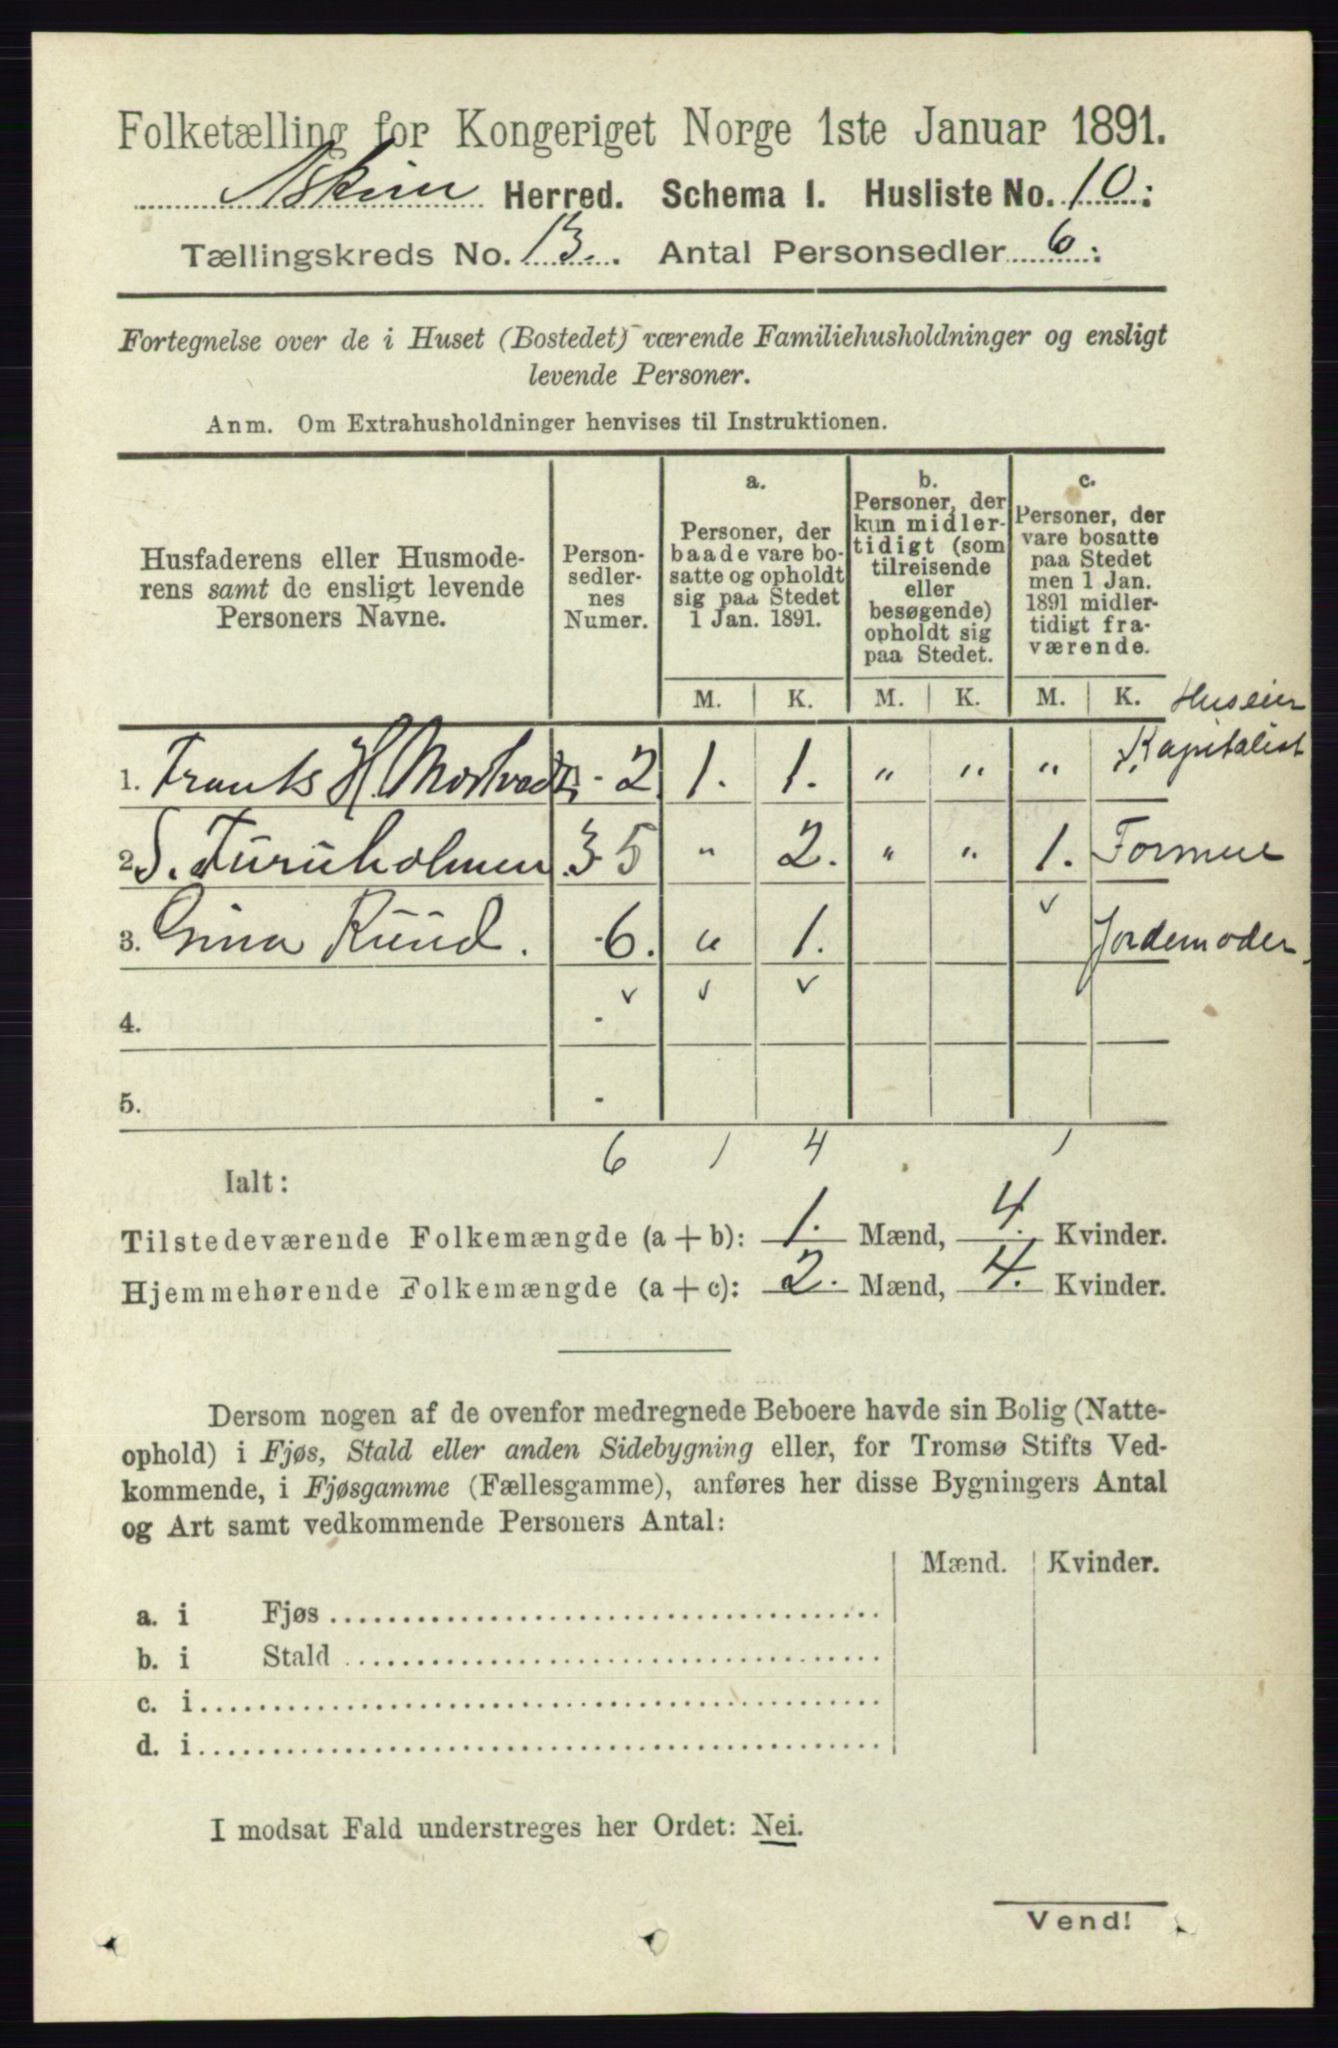 Folketælling for Kongeriget Norge 1ste Januar 1891.
Askim Herred. Schema I. Husliste No. 10.
Tællingskreds No. 13. Antal Personsedler 6.
Fortegnelse over de i Huset (Bostedet) værende Familiehusholdninger og ensligt
levende Personer.
Anm. Om Extrahusholdninger henvises til Instruktionen.
Husfaderens eller Husmode-
rens samt de ensligt levende
Personers Navne.
Person-
sedler-
nes
Numer.
a.
Personer, der
baade vare bo-
satte og opholdt
sig paa Stedet
1 Jan. 1891.
b.
Personer, der
kun midler-
tidigt (som
tilreisende
eller
besøgende)
opholdt sig
paa Stedet.
c.
Personer, der
vare bosatte
paa Stedet
men 1 Jan.
1891 midler-
tidigt fra-
værende.
M. K. M. K. M. K.
Huseier
Kapitalist
1. Frants H. - 2 1. 1. " " "
2. S. Furuholmen 3-5 " 2. " " 1. Formue
3. Gina Ruud. -6. " 1. Jordemoder.
4. -
5. -
6 1 4 1
Ialt:
Tilstedeværende Folkemængde (a + b): 1. Mænd, 4. Kvinder.
Hjemmehørende Folkemængde (a + c): 2. Mænd, 4. Kvinder.
Dersom nogen af de ovenfor medregnede Beboere havde sin Bolig (Natte-
ophold) i Fjøs, Stald eller anden Sidebygning eller, for Tromsø Stifts Ved-
kommende, i Fjøsgamme (Fællesgamme), anføres her disse Bygningers Antal
og Art samt vedkommende Personers Antal:
Mænd. Kvinder.
a. i Fjøs
b. i Stald
c. i
d. i
I modsat Fald understreges her Ordet: Nei.
Vend!